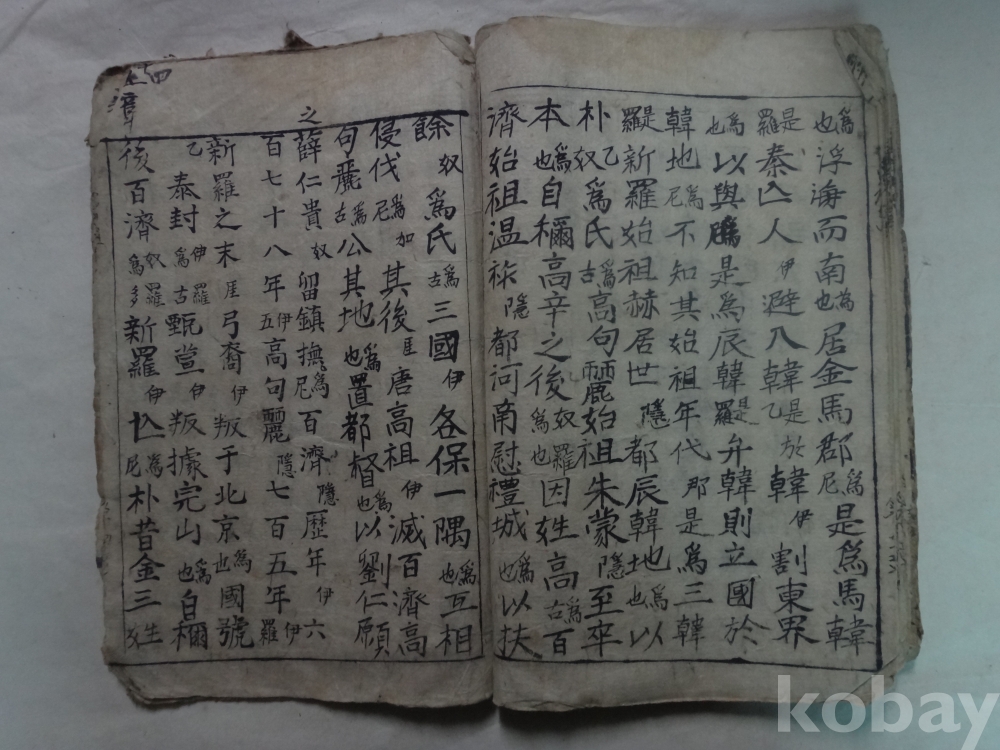 爲也浮海而南為也居金馬郡爲尼是爲馬韓
是羅秦亾人伊避入韓是乙於韓伊割東界
爲也以與爲是爲辰韓是羅弁韓則立國於
韓地爲尼不知其始祖年代那是爲三韓
是羅新羅始祖赫居世隱都辰韓地爲也以
朴乙奴爲氏爲古高句麗始祖朱蒙隱至卒
本爲也自稱高辛之後奴羅爲也因姓高爲古百
濟始祖温祚隱都河南慰禮城爲也以扶
餘奴爲氏爲古三國伊各保一隅爲也互相
侵伐爲加尼其後厓唐高祖伊滅百濟高
句麗爲古公其地爲也置都督爲也以劉仁願
之薛仁貴奴留鎮撫爲尼百濟隱歷年伊六
百七十八年伊五高句麗隱七百五年伊羅
新羅之末厓弓裔伊叛于北京爲也國號
乙泰封伊羅爲古甄萱伊叛據完山爲也自稱
後百濟奴羅爲多新羅伊亾爲尼朴昔金三姓
kobay